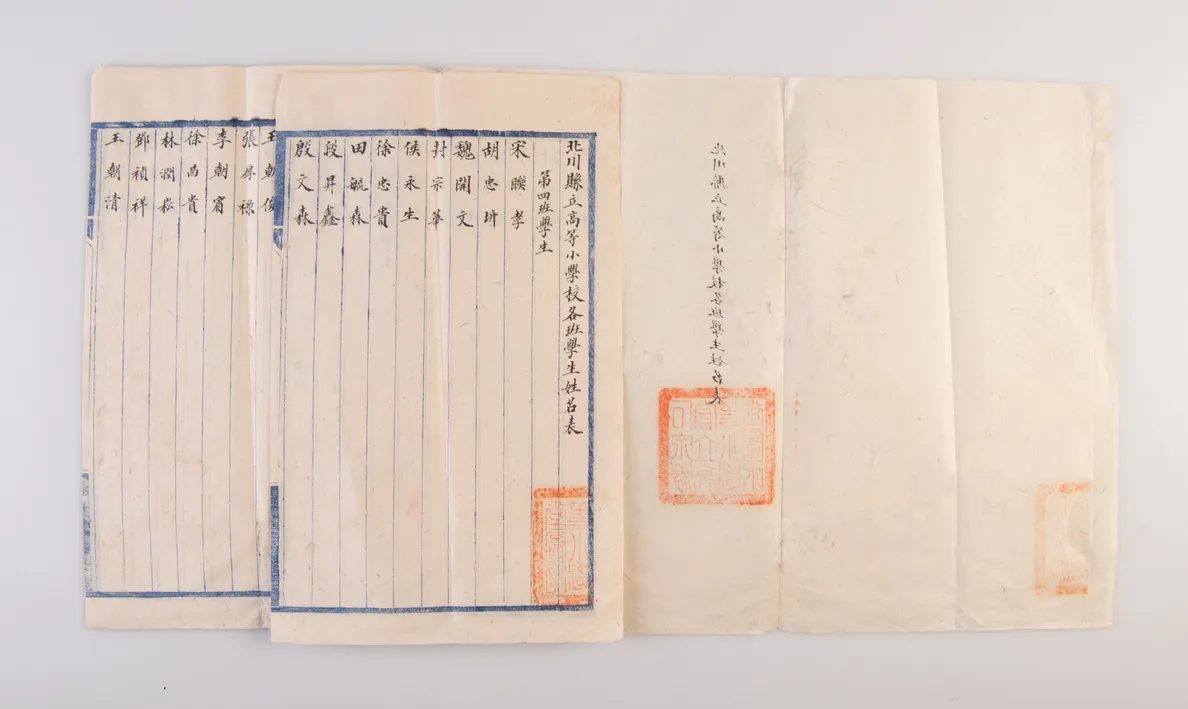 北川縣立高等小學校各班學生姓名表
第四班學生
宋聯孝
胡忠圻
魏開文
封宗華
侯永生
徐忠貴
田毓森
段昇鑫
殷文森
王朝俊
張厚祿
李朝賓
徐昌貴
林潤崧
鄧禎祥
王朝清
北川縣立高等小學校各班學生姓名表